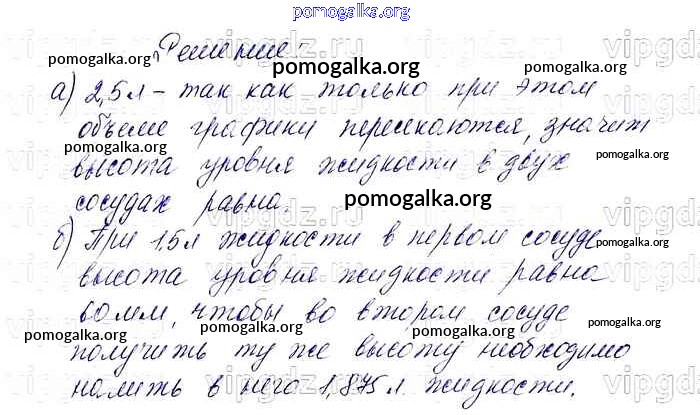 pomogalka.org
Решение:
pomogalka.org
pomogalka.org
а) 2,5 л – так как только при этом
объеме графики пересекаются, значит
pomogalka.org
pomogalka.org
высота уровня жидкости в двух
сосудах равна.
pomogalka.org
б) При 1,5 л жидкости в первом сосуде
pomogalka.org
высота уровня жидкости равна
60мм, чтобы во втором сосуде
pomogalka.org
pomogalka.org
pomogalka.org
получить ту же высоту необходимо
налить в него 1,875 л. жидкости.